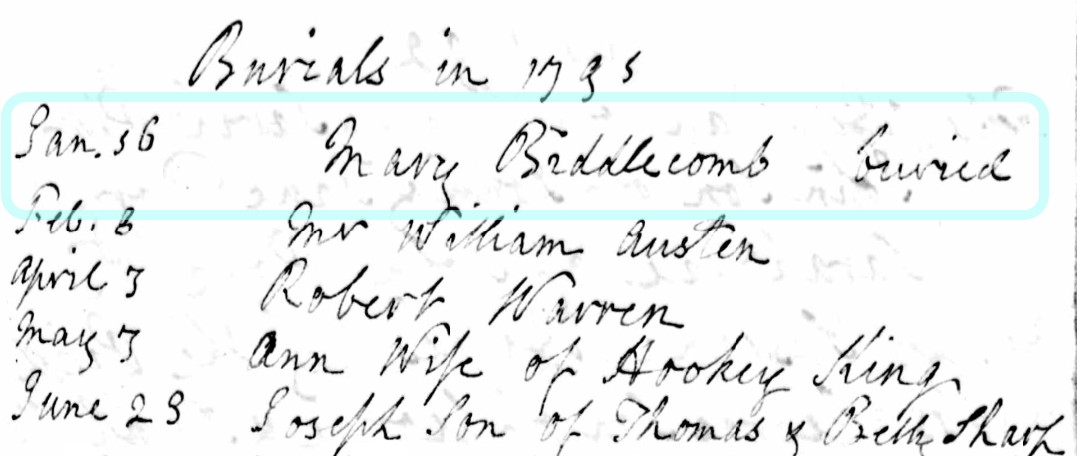 Burials in 1795
Jan. 16 Mary Biddlecomb buried
Feb. 8 Mr William Austen
April 3 Robert Warren
May 3 Ann Wife of Hookey King
June 23 Joseph Son of Thomas & Betty Sharp